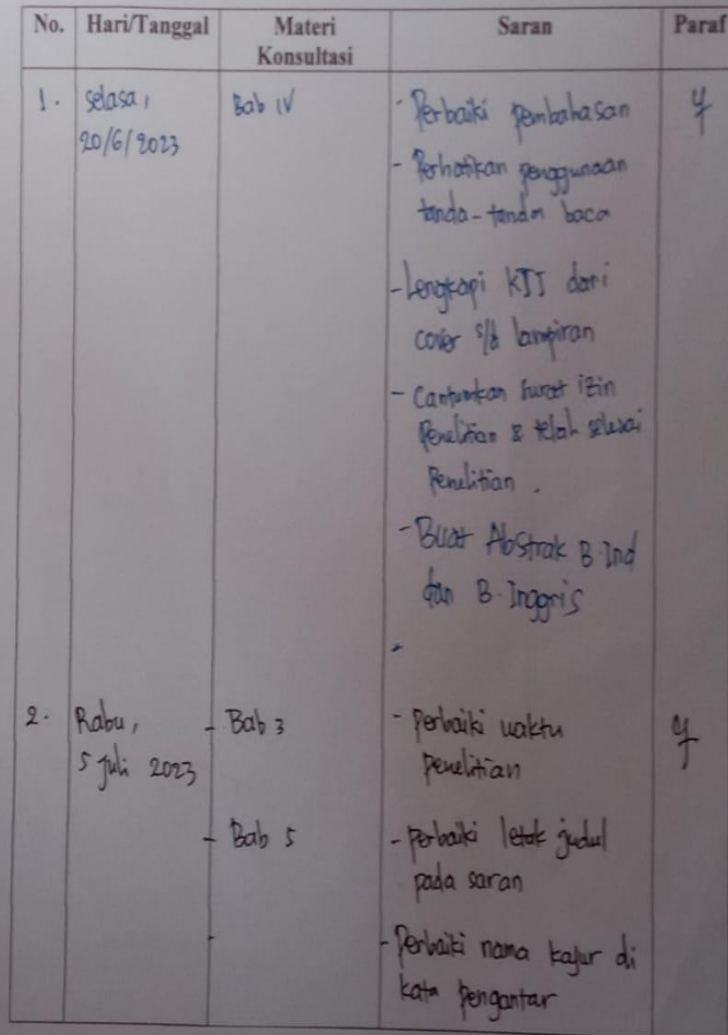 No. Hari/Tanggal Materi Konsultasi Saran Paraf
1. Selasa, Bab IV - Perbaiki pembahasan
20/6/2023
- Perhatikan penggunaan
tanda-tanda baca
- Lengkapi KTI dari
cover s/d lampiran
- Cantumkan surat izin
Penelitian & telah selesai
Penelitian.
- Buat Abstrak B.Ind
dan B.Inggris
-
2. Rabu, - Bab 3 - Perbaiki waktu
5 Juli 2023 penelitian
- Bab 5 - Perbaiki letak judul
pada saran
- - Perbaiki nama kajur di
kata pengantar